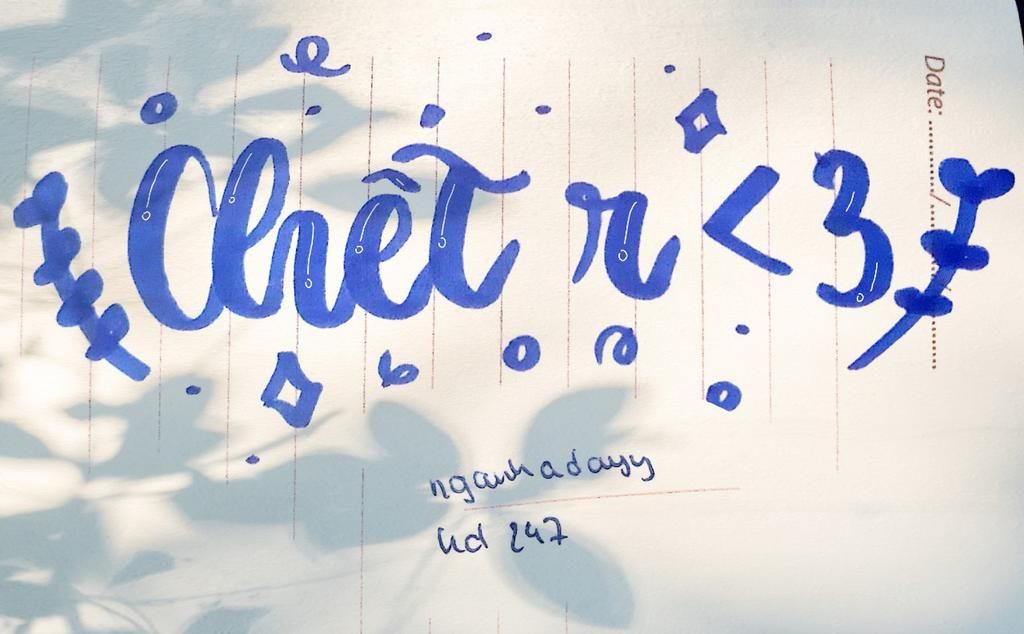 Chết r <3
Date: ......../......../........
nganhadayy
hd 247